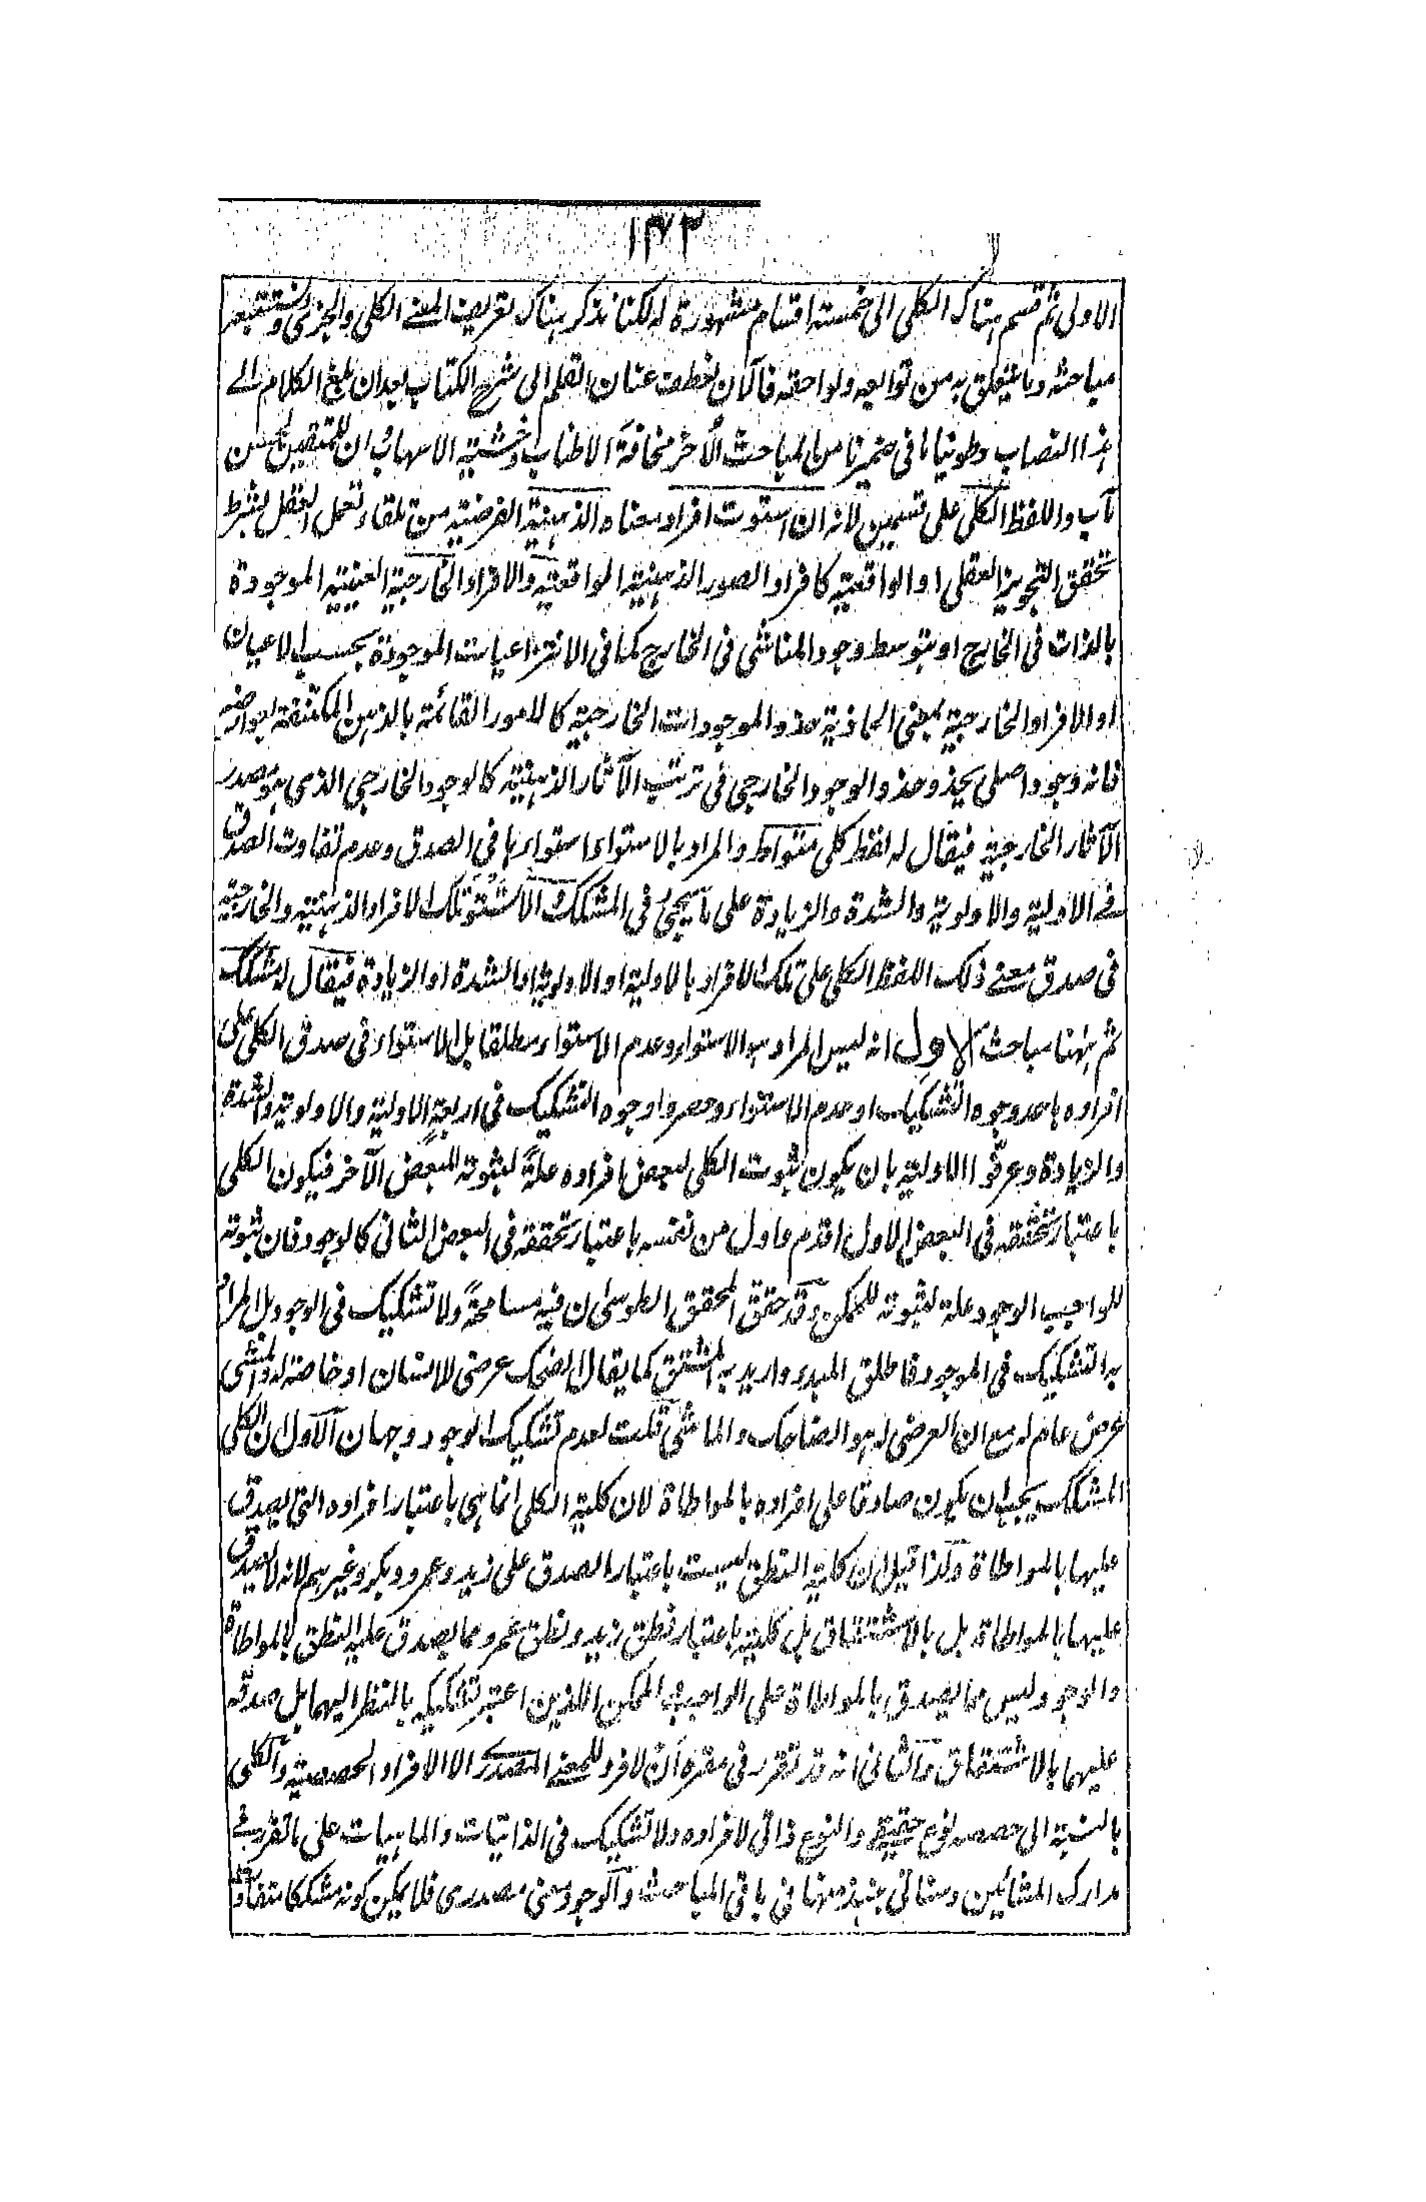 ١٣٢
الاولى ثم قسم هناك الكلى الى خمسة اقسام مشهورة له لكنا نذكر هناك تعريف المعنى الكلى والجزئى ونستتبعه
مباحثه وما يتعلق به من توابعه ولواحقه فالآن نعطف عنان القلم الى شرح الكتاب بعد ان بلغ الكلام الى
هذا النصاب وطوينا ما فى ضميرنا من المباحث الأخر مخافة الاطناب وخشية الاسهاب ان للمتقين لحسن
مآب واللفظ الكلى على قسمين لانه ان استوت افراد معناه الذهنية الفرضية من تلقاء تعمل العقل بشرط
تحقق التجويز العقلى او الواقعية كافراد الصور الذهنية الواقعية والافراد الخارجية العينية الموجودة
بالذات فى الخارج او بتوسط وجود المناشى فى الخارج كما فى الانتزاعيات الموجودة بحسب الاعيان
او الافراد الخارجية بمعنى الحاذية حذو الموجودات الخارجية كالامور القائمة بالذهن المكتنفة بعوارضه
فانه وجود اصلى يحذو حذو الوجود الخارجى فى ترتب الآثار الذهنية كالوجود الخارجى الذى هو مصدر
الآثار الخارجية فيقال له لفظ كلى متواط والمراد بالاستواء استواءها فى الصدق وعدم تفاوت الصدق
فى الاولية والاولوية والشدة والزيادة على ما يجيئ فى المشكك والا تستو تلك الافراد الذهنية والخارجية
فى صدق معنى ذلك اللفظ الكلى على تلك الافراد بالاولية او الاولوية او الشدة او الزيادة فيقال له مشكك
ثم ههنا مباحث الاول انه ليس المراد هو الاستواء وعدم الاستواء مطلقا بل الاستواء فى صدق الكلى على
افراده باحد وجوه التشكيك او عدم الاستواء وحصروا وجوه التشكيك فى اربعة الاولية والاولوية والشدة
والزيادة وعرفوا الاولية بان يكون ثبوت الكلى لبعض افراده علة لثبوته للبعض الآخر فيكون الكلى
باعتبار تحققه فى البعض الاول اقدم واول من نفسه باعتبار تحققه فى البعض الثانى كالوجود فان ثبوته
للواجب الوجود علة لثبوته للممكن وقد حقق المحقق الطوسى ان فيه مسامحة ولا تشكيك فى الوجود بل المراد
به التشكيك فى الموجود فاطلق المبدء واريد به المشتق كما يقال الضحك عرضى للانسان او خاصة له والمشى
عرض عام له مع ان العرضى له هو الضاحك والماشى قلت لعدم تشكيك الوجود وجهان الاول ان الكلى
المشكك يجب ان يكون صادقا على افراده بالمواطاة لان كلية الكلى انما هى باعتبار افراده التى يصدق
عليها بالمواطاة وكذا قيل ان كلية النطق ليست باعتبار الصدق على زيد وعمرو وبكر وغيرهم لانه لا يصدق
عليها بالمواطاة بل بالاشتقاق بل كليته باعتبار نطق زيد ونطق عمرو مما يصدق عليه النطق بالمواطاة
والوجود ليس مما يصدق بالمواطاة على الواجب والممكن اللذين اعتبر تشكيكه بالنظر اليهما بل صدقه
عليهما بالاشتقاق والثانى انه قد تقرر فى مقره ان لا فرد للمعنى المصدرى الا الافراد الحصصية والكلى
بالنسبة الى حصصه نوع حقيقى والنوع ذاتى لافراده ولا تشكيك فى الذاتيات والماهيات على ما تقرر فى
مدارك المشائين وسنأتى بنبذ منها فى باقى المباحث والوجود معنى مصدرى فلا يمكن كونه مشككا متفاوتا